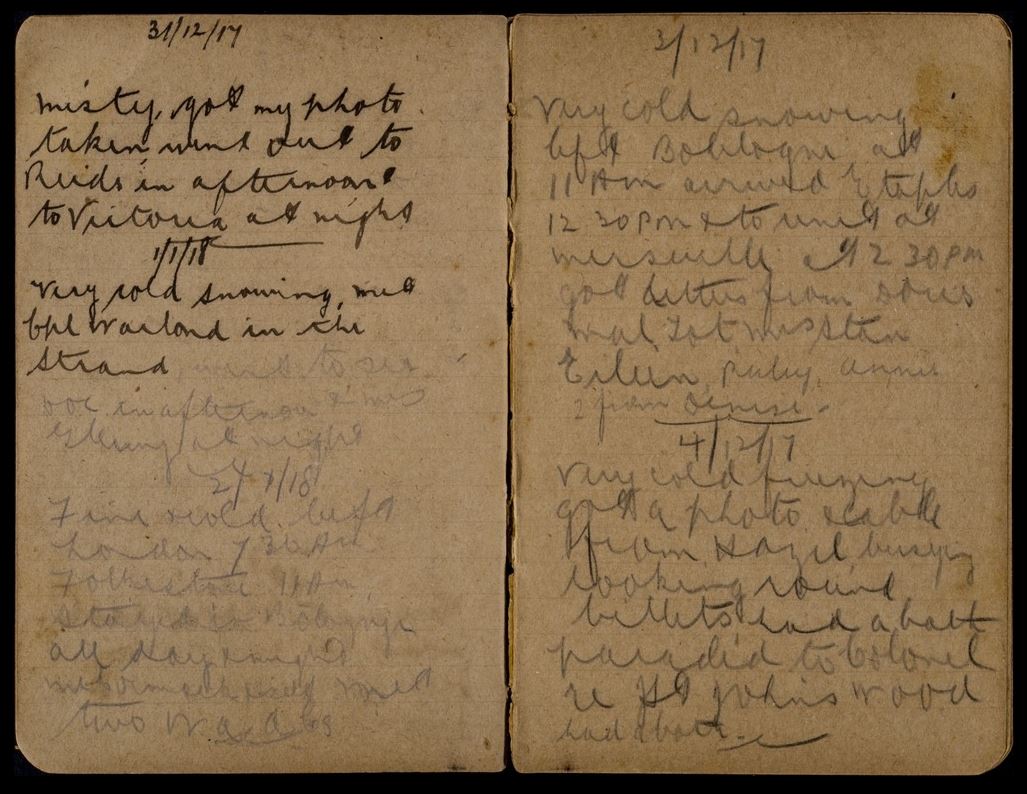 31/12/17
misty, got my photo
taken, went out to
Reids in afternoon &
to Victoria at night
1/1/18
Very cold snowing, met
Cpl Warland in the
Strand, went to see
Doc in afternoon & mrs
at night
2/1/18
Fine & cold, left
London 7 30 Am
Folkestone 11 Am,
Stayed in Bologne
all day & night
met
two Waacs
3/12/17
Very cold snowing
left Bolologne at
11 Am arrived Etaples
12 30 PM & to unit at
at 2 30 PM
got letters from Doris
mal, Tot, mrs Stan
Eileen, Ruby, Annie
2 from Denise -
4/12/17
Very cold freezing
got a photo & cable
from Hazel busying
looking round
billets had a batt
parade to Colonel
re St Johns Wood
had a bath.